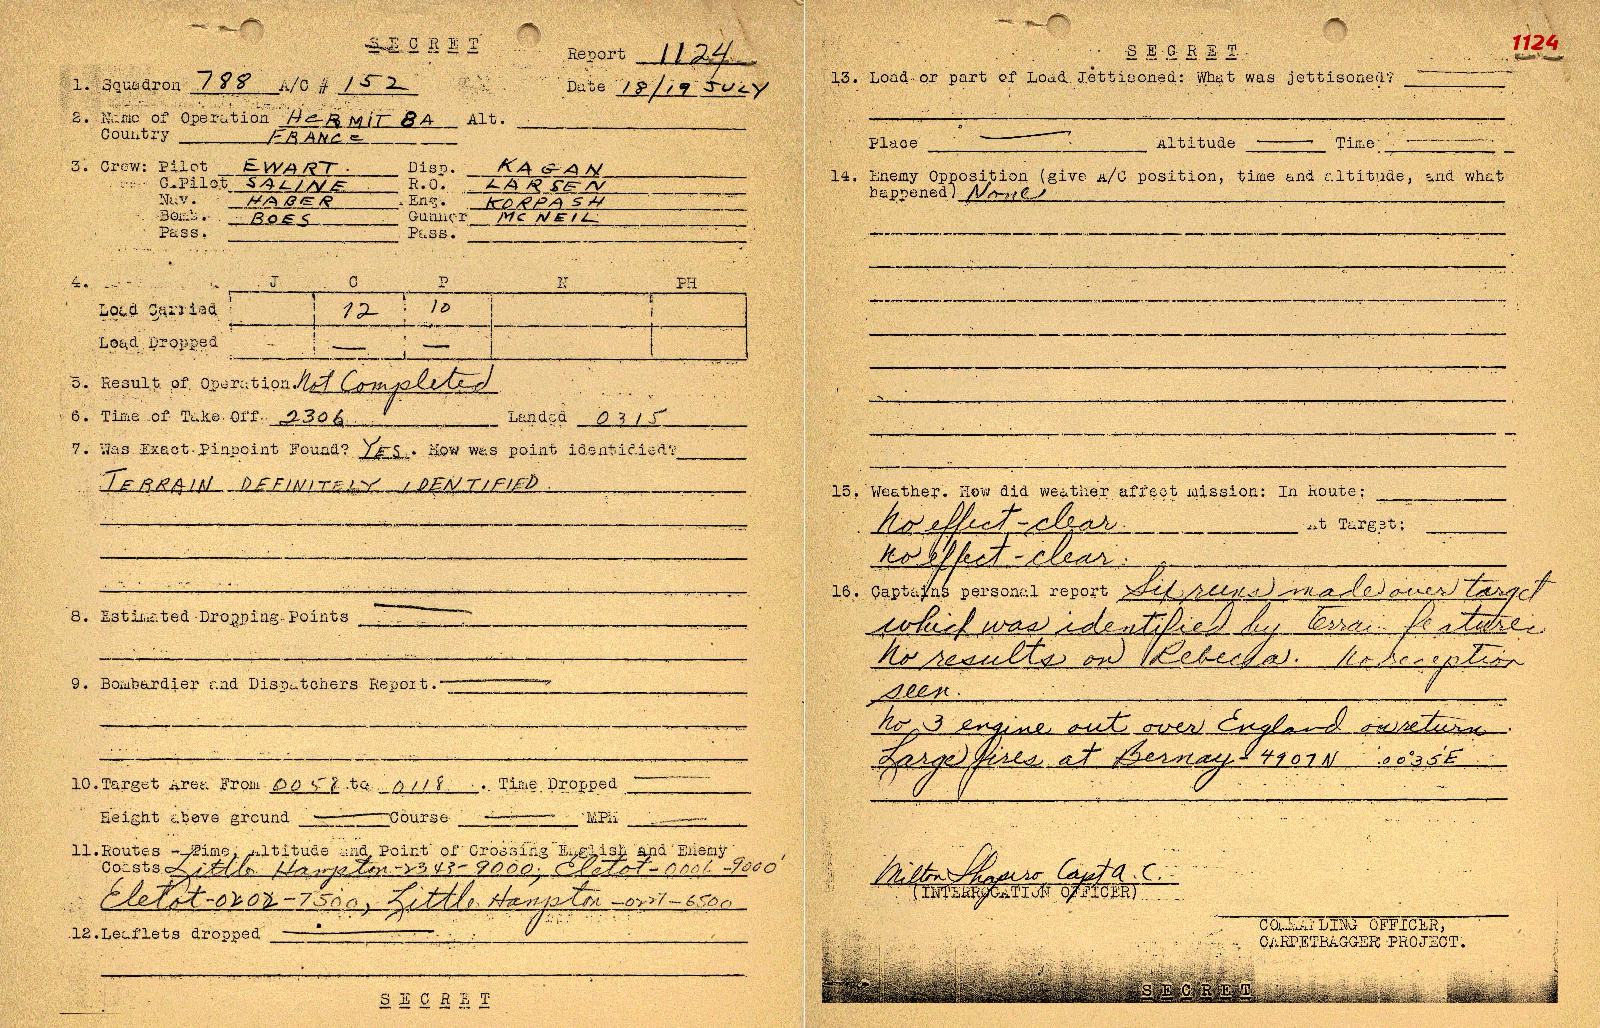 SECRET
Report 1124
1. Squadron 788 A/C # 152 Date 18/19 JULY
2. Name of Operation HERMIT 8A Alt.
Country FRANCE
3. Crew: Pilot EWART Disp. KAGAN
C.Pilot SALINE R.O. LARSEN
Nav. HABER Eng. KORPASH
Bomb. BOES Gunner MCNEIL
Pass. Pass.
4. J C P N PH
Load Carried 12 10
Load Dropped - — —
5. Result of Operation. Not Completed
6. Time of Take Off 2306 Landed 0315
7. Was Exact Pinpoint Found? YES. How was point identidied?
TERRAIN DEFINITELY IDENTIFIED.
8. Estimated Dropping Points —
9. Bombardier and Dispatchers Report. —
10. Target Area From 0058 to 0118. Time Dropped —
Height above ground — Course — MPH —
11. Routes - Time, Altitude and Point of Crossing English and Enemy
Coasts Little Hampton-2343-9000; Eletot-0006-9000'
Eletot-0202-7500, Little Hampton -0227-6500
12. Leaflets dropped —
SECRET
1124
SECRET
13. Load or part of Load Jettisoned: What was jettisoned? —
Place — Altitude — Time —
14. Enemy Opposition (give A/C position, time and altitude, and what
happened) None
15. Weather. How did weather affect mission: In Route:
No effect-clear. At Target:
no effect-clear.
16. Captains personal report Six runs made over target
which was identified by terrain features
No results on Rebecca. No reception
seen.
No. 3 engine out over England on return.
Large fires at Bernay-4907N 0035E
Milton Shapiro Capt A.C.
(INTERROGATION OFFICER)
COMMANDING OFFICER,
CARPETBAGGER PROJECT.
SECRET